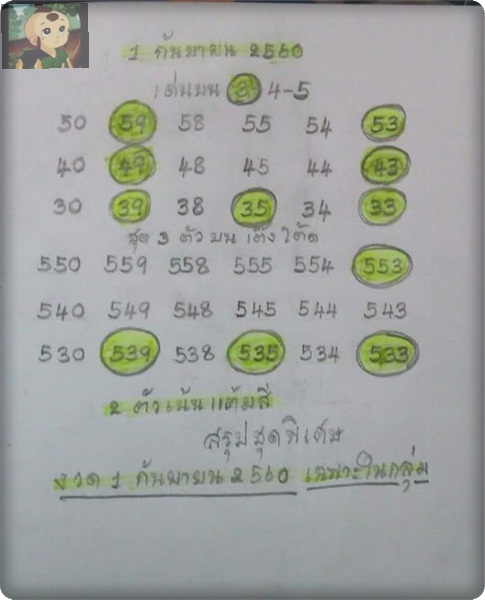 1 กันยายน 2560
เด่นบน 3 4-5
50 59 58 55 54 53
40 49 48 45 44 43
30 39 38 35 34 33
ชุด 3 ตัว บน เต๊ง โต๊ด
550 559 558 555 554 553
540 549 548 545 544 543
530 539 538 535 534 533
2 ตัวเน้นแต้มสี
สรุปชุดพิเศษ
งวด 1 กันยายน 2560 เฉพาะในกลุ่ม